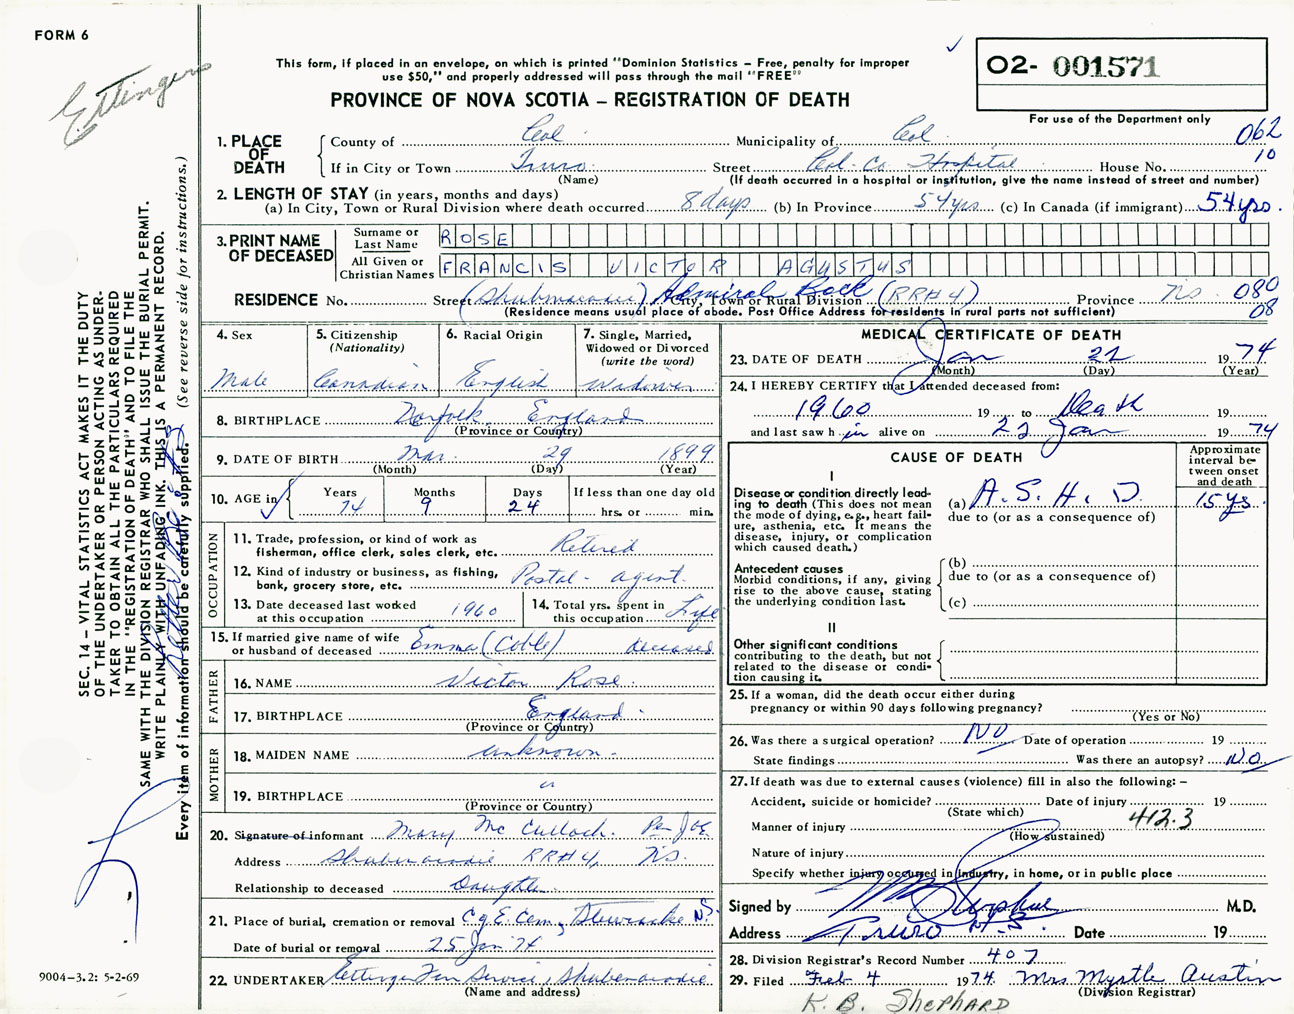 FORM 6
Ettingers
This form, if placed in an envelope, on which is printed "Dominion Statistics – Free, penalty for improper
use $50," and properly addressed will pass through the mail "FREE"
PROVINCE OF NOVA SCOTIA – REGISTRATION OF DEATH
O2- 001571
For use of the Department only
062
10
1. PLACE OF DEATH
County of Col. Municipality of Col.
If in City or Town Truro. Street Col. Co. Hospital House No.
(Name) (If death occurred in a hospital or institution, give the name instead of street and number)
2. LENGTH OF STAY (in years, months and days)
(a) In City, Town or Rural Division where death occurred 8 days (b) In Province 54 yrs (c) In Canada (if immigrant) 54 yrs.
3. PRINT NAME OF DECEASED
Surname or Last Name ROSE
All Given or Christian Names FRANCIS VICTOR AGUSTUS
RESIDENCE No. Street (Shubenacadie) Admiral Rock (RR#4) City, Town or Rural Division Province NS. 080
08
(Residence means usual place of abode. Post Office Address for residents in rural parts not sufficient)
4. Sex Male
5. Citizenship (Nationality) Canadian
6. Racial Origin English
7. Single, Married, Widowed or Divorced (write the word) Widower
8. BIRTHPLACE Norfolk, England
(Province or Country)
9. DATE OF BIRTH Mar. 29 1899
(Month) (Day) (Year)
10. AGE in Years 74 Months 9 Days 24 If less than one day old hrs. or min.
OCCUPATION
11. Trade, profession, or kind of work as fisherman, office clerk, sales clerk, etc. Retired
12. Kind of industry or business, as fishing, bank, grocery store, etc. Postal - agent.
13. Date deceased last worked at this occupation 1960
14. Total yrs. spent in this occupation Life
15. If married give name of wife or husband of deceased Emma (Coble) deceased
FATHER
16. NAME Victor Rose.
17. BIRTHPLACE England.
(Province or Country)
MOTHER
18. MAIDEN NAME unknown
19. BIRTHPLACE "
(Province or Country)
20. Signature of informant Mary Mc Culloch. Per JOE
Address Shubenacadie RR#4, NS.
Relationship to deceased Daughter
21. Place of burial, cremation or removal C of E. Cem, Stewiacke N.S.
Date of burial or removal 25 Jan 74
22. UNDERTAKER Ettinger Fun Service, Shubenacadie
(Name and address)
MEDICAL CERTIFICATE OF DEATH
23. DATE OF DEATH Jan 22 1974
(Month) (Day) (Year)
24. I HEREBY CERTIFY that I attended deceased from:
1960 19 to Death 19
and last saw h im alive on 22 Jan 1974
CAUSE OF DEATH
Approximate interval between onset and death
I
Disease or condition directly leading to death (This does not mean the mode of dying, e.g., heart failure, asthenia, etc. It means the disease, injury, or complication which caused death.)
(a) A.S.H.D. 15 yrs.
due to (or as a consequence of)
Antecedent causes
Morbid conditions, if any, giving rise to the above cause, stating the underlying condition last.
(b)
due to (or as a consequence of)
(c)
II
Other significant conditions contributing to the death, but not related to the disease or condition causing it.
25. If a woman, did the death occur either during pregnancy or within 90 days following pregnancy?
(Yes or No)
26. Was there a surgical operation? NO Date of operation 19
State findings Was there an autopsy? NO.
27. If death was due to external causes (violence) fill in also the following: –
Accident, suicide or homicide? Date of injury 19
(State which) 412.3
Manner of injury
(How sustained)
Nature of injury
Specify whether injury occurred in industry, in home, or in public place
Signed by M.D.
Address Truro N-S. Date 19
28. Division Registrar's Record Number 407
29. Filed Feb 4 1974. Mrs Myrtle Austin
(Division Registrar)
K. B. SHEPHARD
SEC. 14 – VITAL STATISTICS ACT MAKES IT THE DUTY
OF THE UNDERTAKER OR PERSON ACTING AS UNDER-
TAKER TO OBTAIN ALL THE PARTICULARS REQUIRED
IN THE "REGISTRATION OF DEATH" AND TO FILE THE
SAME WITH THE DIVISION REGISTRAR WHO SHALL ISSUE THE BURIAL PERMIT.
WRITE PLAINLY WITH UNFADING INK. THIS IS A PERMANENT RECORD.
Every item of information should be carefully supplied. (See reverse side for instructions.)
9004–3.2: 5-2-69